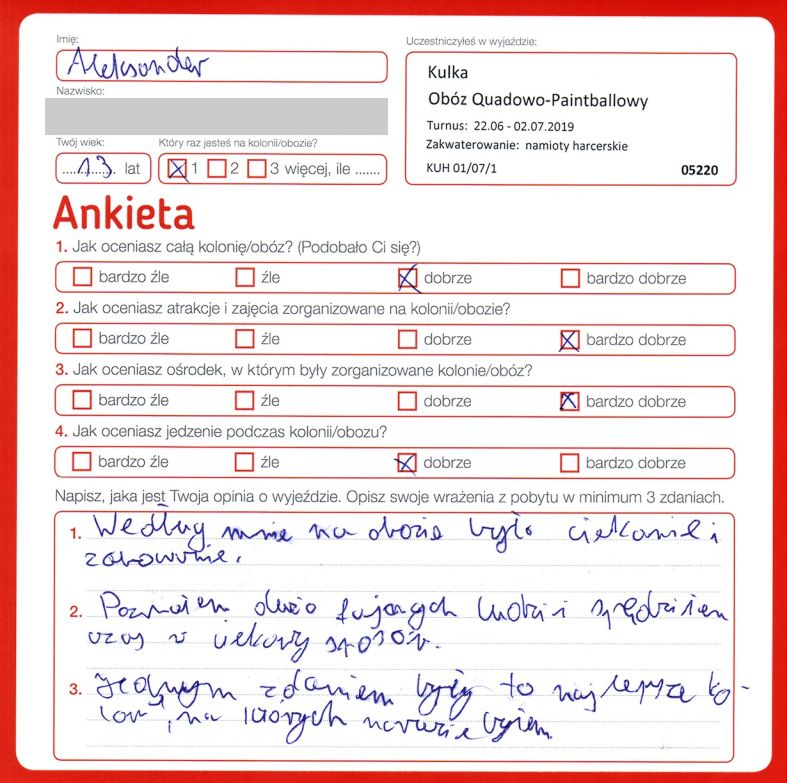 Imię:
Aleksander
Uczestniczyłeś w wyjeździe:
Kulka
Obóz Quadowo-Paintballowy
Turnus: 22.06 - 02.07.2019
Zakwaterowanie: namioty harcerskie
KUH 01/07/1 05220
Nazwisko:
Twój wiek: Który raz jesteś na kolonii/obozie?
13 lat 1 2 3 więcej, ile .......
Ankieta
1. Jak oceniasz całą kolonię/obóz? (Podobało Ci się?)
bardzo źle źle dobrze bardzo dobrze
2. Jak oceniasz atrakcje i zajęcia zorganizowane na kolonii/obozie?
bardzo źle źle dobrze bardzo dobrze
3. Jak oceniasz ośrodek, w którym były zorganizowane kolonie/obóz?
bardzo źle źle dobrze bardzo dobrze
4. Jak oceniasz jedzenie podczas kolonii/obozu?
bardzo źle źle dobrze bardzo dobrze
Napisz, jaka jest Twoja opinia o wyjeździe. Opisz swoje wrażenia z pobytu w minimum 3 zdaniach.
1. Według mnie na obozie było ciekawie i
2. Poznałem dużo fajnych ludzi i spędziłem
czas w ciekawy sposób.
3. Jednym zdaniem były to najlepsze ko-
lonie, na których na razie byłem.